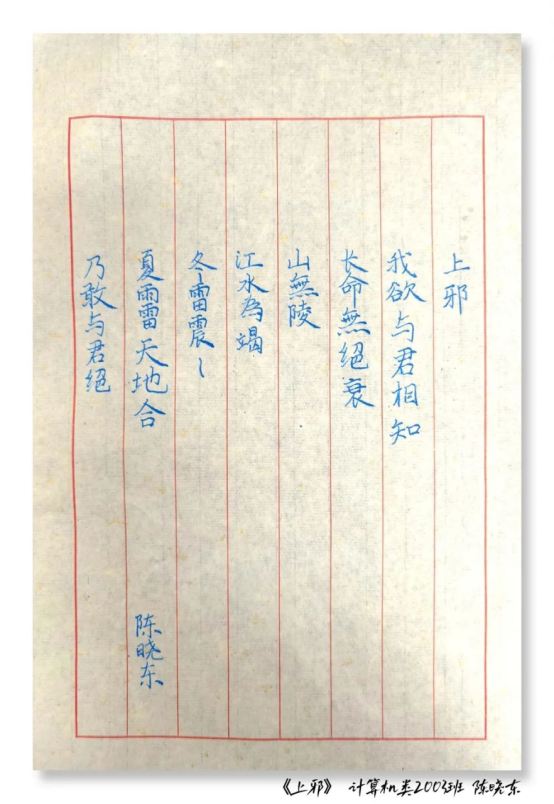 上邪
我欲与君相知
长命無絕衰
山無陵
江水為竭
冬雷震〻
夏雨雷天地合
乃敢与君绝
陈晓东
《上邪》 计算机类2003班 陈晓东